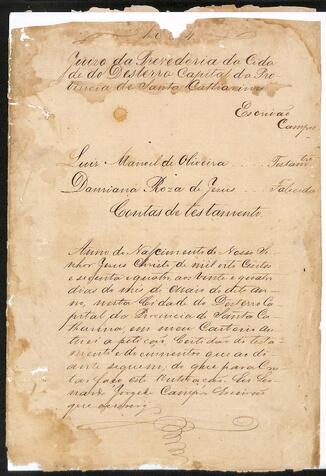 Juizo da Provedoria da Cida
de do Desterro Capital da Pro
vincia de Santa Catharina
Escrivão
Campos
Luiz Manoel de Oliveira Testamtro
Damiana Roza de Jesus Falecida
Contas de testamento
Anno do Nascimento de Nosso Se
nhor Jesus Christo de mil oito Centos
e secenta e quatro, aos Vinte e quatro
dias do mes de Maio do dito an
no, nesta Cidade do Desterro Ca
pital da Provincia de Santa Ca
tharina, em meu Cartorio au
tuei a petição, Certidão de testa
mento e documentos que ao di
ante seguem; do que para Cons
tar faço esta Autuação. Eu Leo
nardo Jorge de Campos Escrivão
que escrevy